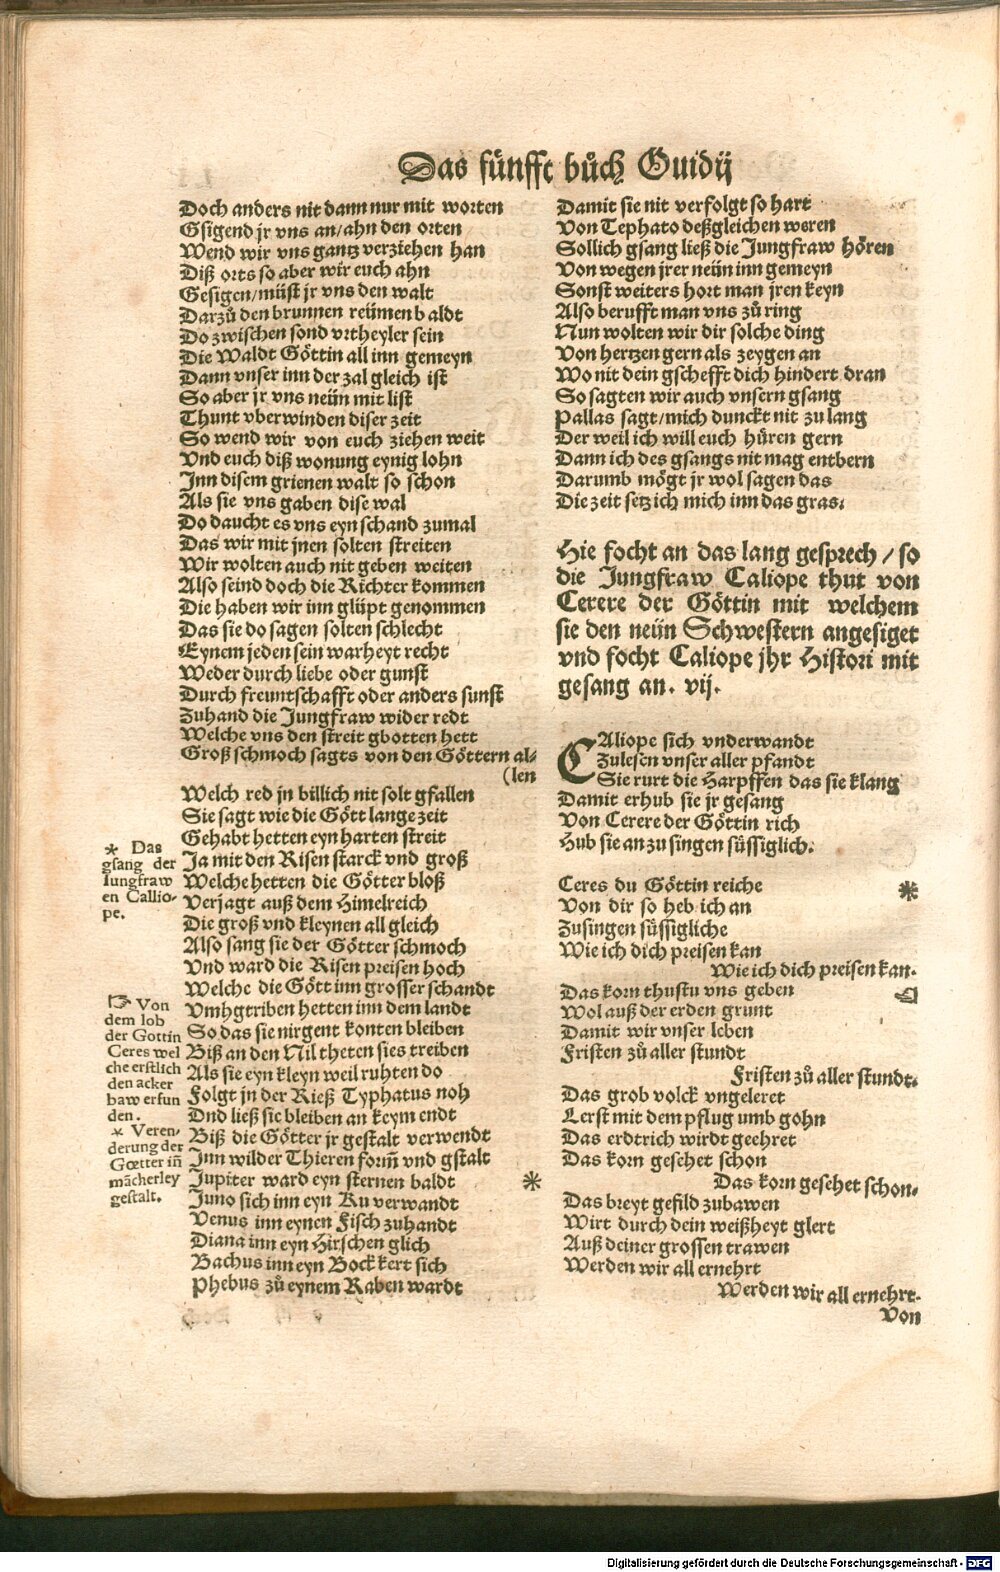 Das fünfft bůch Ouidij
Doch anders nit dann nur mit worten
Gsigend jr vns an/ahn den orten
Wend wir vns gantz verziehen han
Diß orts so aber wir euch ahn
Gesigen/müst jr vns den walt
Darzů den brunnen reümen baldt
Do zwischen sond vrtheyler sein
Die Waldt Göttin all inn gemeyn
Dann vnser inn der zal gleich ist
So aber jr vns neün mit list
Thunt vberwinden diser zeit
So wend wir von euch ziehen weit
Vnd euch diß wonung eynig lohn
Inn disem grienen walt so schon
Als sie vns gaben dise wal
Do daucht es vns eyn schand zumal
Das wir mit jnen solten streiten
Wir wolten auch nit geben weiten
Also seind doch die Richter kommen
Die haben wir inn glüpt genommen
Das sie do sagen solten schlecht
Eynem jeden sein warheyt recht
Weder durch liebe oder gunst
Durch freuntschafft oder anders sunst
Zuhand die Jungfraw wider redt
Welche vns den streit gbotten hett
Groß schmoch sagts von den Göttern al-
(len
Welch red jn billich nit solt gfallen
Sie sagt wie die Gött lange zeit
Gehabt hetten eyn harten streit
Ja mit den Risen starck vnd groß
Welche hetten die Götter bloß
Verjagt auß dem Himelreich
Die groß vnd kleynen all gleich
Also sang sie der Götter schmoch
Vnd ward die Risen preisen hoch
Welche die Gött inn grosser schandt
Vmhgtriben hetten inn dem landt
So das sie nirgent konten bleiben
Biß an den Nil theten sies treiben
Als sie eyn kleyn weil ruhten do
Folgt jn der Rieß Typhatus noh
Dnd ließ sie bleiben an keym endt
Biß die Götter jr gestalt verwendt
Inn wilder Thieren form̃ vnd gstalt
Jupiter ward eyn sternen baldt
Juno sich inn eyn Ku verwandt
Venus inn eynen Fisch zuhandt
Diana inn eyn Hirschen glich
Bachus inn eyn Bock kert sich
Phebus zů eynem Raben wardt
* Das
gsang der
Iungfraw
en Callio-
pe.
☞ Von
dem lob
der Gottin
Ceres wel
che erstlich
den acker
baw erfun
den.
* Veren-
derung der
Gœtter iñ
mãcherley
gestalt.
Damit sie nit verfolgt so hart
Von Tephato deßgleichen weren
Sollich gsang ließ die Jungfraw hören
Von wegen jrer neün inn gemeyn
Sonst weiters hort man jren keyn
Also berufft man vns zů ring
Nun wolten wir dir solche ding
Von hertzen gern als zeygen an
Wo nit dein gschefft dich hindert dran
So sagten wir auch vnsern gsang
Pallas sagt/mich dunckt nit zu lang
Der weil ich will euch hüren gern
Dann ich des gsangs nit mag entbern
Darumb mögt jr wol sagen das
Die zeit setz ich mich inn das gras.
Hie focht an das lang gesprech / so
die Jungfraw Caliope thut von
Cerere der Göttin mit welchem
sie den neün Schwestern angesiget
vnd focht Caliope jhr Histori mit
gesang an. vij.
CAliope sich vnderwandt
Zulesen vnser aller pfandt
Sie rurt die Harpffen das sie klang
Damit erhub sie jr gesang
Von Cerere der Göttin rich
Hub sie an zu singen süssiglich.
Ceres du Göttin reiche *
Von dir so heb ich an
Zusingen süssigliche
Wie ich dich preisen kan
Wie ich dich preisen kan.
Das korn thustu vns geben ☜
Wol auß der erden grunt
Damit wir vnser leben
Fristen zů aller stundt
Fristen zů aller stundt.
Das grob volck vngeleret
Lerst mit dem pflug umb gohn
Das erdtrich wirdt geehret
Das korn gesehet schon
* Das korn gesehet schon.
Das breyt gefild zubawen
Wirt durch dein weißheyt glert
Auß deiner grossen trawen
Werden wir all ernehrt
Werden wir all ernehrt.
Von
Digitalisierung gefördert durch die Deutsche Forschungsgemeinschaft - DFG